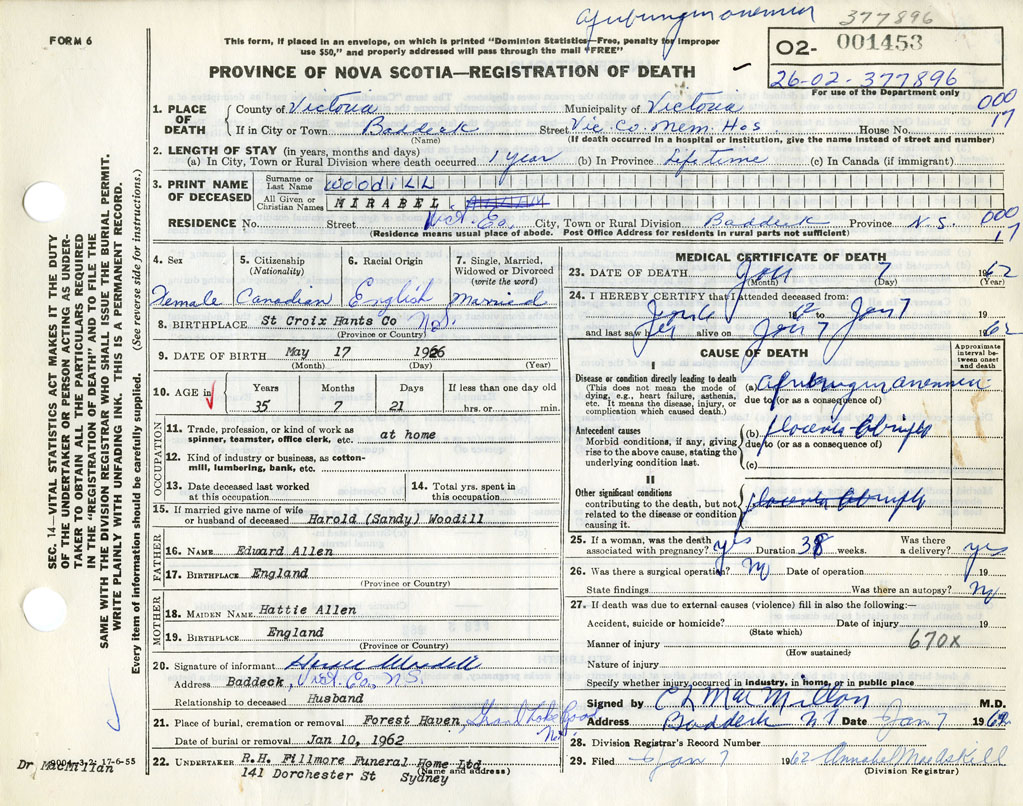 377896
FORM 6
This form, if placed in an envelope, on which is printed "Dominion Statistics—Free, penalty for improper
use $50," and properly addressed will pass through the mail "FREE"
02- 001453
26-02-377896
For use of the Department only
PROVINCE OF NOVA SCOTIA—REGISTRATION OF DEATH
1. PLACE OF DEATH County of Victoria Municipality of Victoria 000 17
If in City or Town Baddeck Street Vic. Co. Mem. Hos. House No.
(Name) (If death occurred in a hospital or institution, give the name instead of street and number)
2. LENGTH OF STAY (in years, months and days)
(a) In City, Town or Rural Division where death occurred 1 year (b) In Province Life time (c) In Canada (if immigrant)
3. PRINT NAME OF DECEASED Surname or Last Name WOODILL
All Given or Christian Names MIRABEL
RESIDENCE No. Street Vict. Co. City, Town or Rural Division Baddeck Province N.S. 000 17
(Residence means usual place of abode. Post Office Address for residents in rural parts not sufficient)
4. Sex 5. Citizenship (Nationality) 6. Racial Origin 7. Single, Married, Widowed or Divorced (write the word)
Female Canadian English Married
8. BIRTHPLACE St Croix Hants Co N.S.
9. DATE OF BIRTH May 17 1926
(Month) (Day) (Year)
10. AGE in Years Months Days If less than one day old
35 7 21 hrs. or min.
OCCUPATION
11. Trade, profession, or kind of work as spinner, teamster, office clerk, etc. at home
12. Kind of industry or business, as cotton-mill, lumbering, bank, etc.
13. Date deceased last worked at this occupation
14. Total yrs. spent in this occupation
15. If married give name of wife or husband of deceased Harold (Sandy) Woodill
FATHER
16. NAME Edward Allen
17. BIRTHPLACE England
(Province or Country)
MOTHER
18. MAIDEN NAME Hattie Allen
19. BIRTHPLACE England
(Province or Country)
20. Signature of informant Harold Woodill
Address Baddeck, Vict. Co., N.S.
Relationship to deceased Husband
21. Place of burial, cremation or removal Forest Haven, Grand Lake Road N.S.
Date of burial or removal Jan 10, 1962
22. UNDERTAKER R.H. Fillmore Funeral Home Ltd
141 Dorchester St Sydney
(Name and address)
MEDICAL CERTIFICATE OF DEATH
23. DATE OF DEATH Jan 7 1962
(Month) (Day) (Year)
24. I HEREBY CERTIFY that I attended deceased from:
19 to Jan 7 19
and last saw her alive on Jan 7 1962
CAUSE OF DEATH
Approximate interval between onset and death
I
Disease or condition directly leading to death
(This does not mean the mode of dying, e.g., heart failure, asthenia, etc. It means the disease, injury, or complication which caused death.)
(a)
due to (or as a consequence of)
Antecedent causes
Morbid conditions, if any, giving rise to the above cause, stating the underlying condition last.
(b)
due to (or as a consequence of)
(c)
II
Other significant conditions
contributing to the death, but not related to the disease or condition causing it.
25. If a woman, was the death associated with pregnancy? yes Duration 38 weeks. Was there a delivery? yes
26. Was there a surgical operation? No Date of operation 19
State findings Was there an autopsy? No
27. If death was due to external causes (violence) fill in also the following:—
Accident, suicide or homicide? Date of injury 19
(State which)
Manner of injury 670X
(How sustained)
Nature of injury
Specify whether injury occurred in industry, in home, or in public place
Signed by C L MacMillan M.D.
Address Baddeck NS Date Jan 7 1962
28. Division Registrar's Record Number
29. Filed Jan 7 1962 Annabel MacAskill
(Division Registrar)
SEC. 14—VITAL STATISTICS ACT MAKES IT THE DUTY
OF THE UNDERTAKER OR PERSON ACTING AS UNDER-
TAKER TO OBTAIN ALL THE PARTICULARS REQUIRED
IN THE "REGISTRATION OF DEATH" AND TO FILE THE
SAME WITH THE DIVISION REGISTRAR WHO SHALL ISSUE THE BURIAL PERMIT.
WRITE PLAINLY WITH UNFADING INK. THIS IS A PERMANENT RECORD.
Every item of information should be carefully supplied. (See reverse side for instructions.)
Dr MacMillan
17-6-55